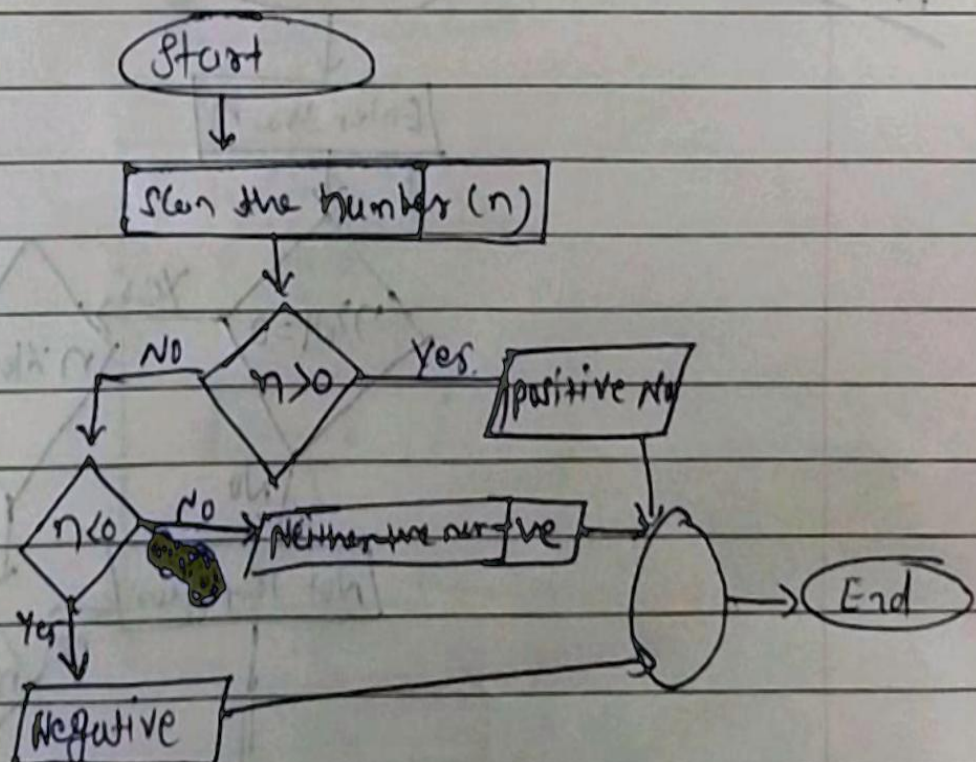 Start
Scan the number (n)
NO
n>0
Yes.
positive No
n<0
NO
Neither +ve nor -ve
End
Yes
Negative